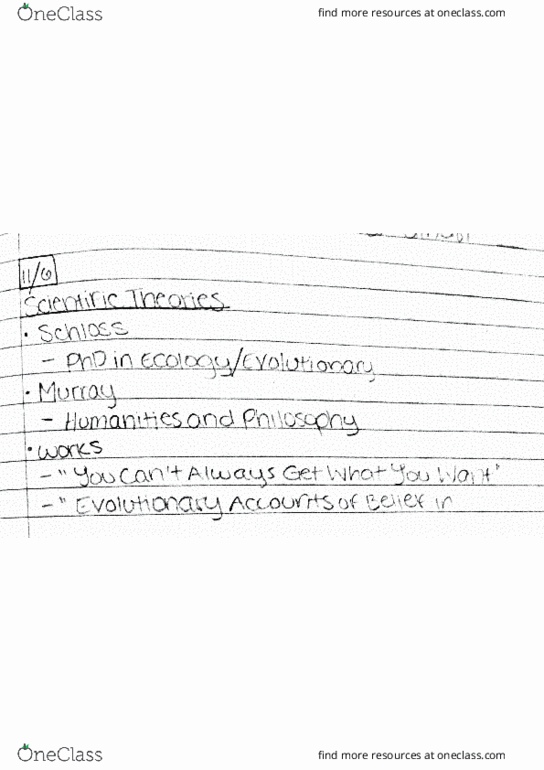 OneClass
find more resources at oneclass.com
11/6
Scientific Theories
• Schloss
- PhD in Ecology/Evolutionary
• Murray
- Humanities and Philosophy
• Works
- "You Can't Always Get What You Want"
- "Evolutionary Accounts of Belief in
OneClass
find more resources at oneclass.com